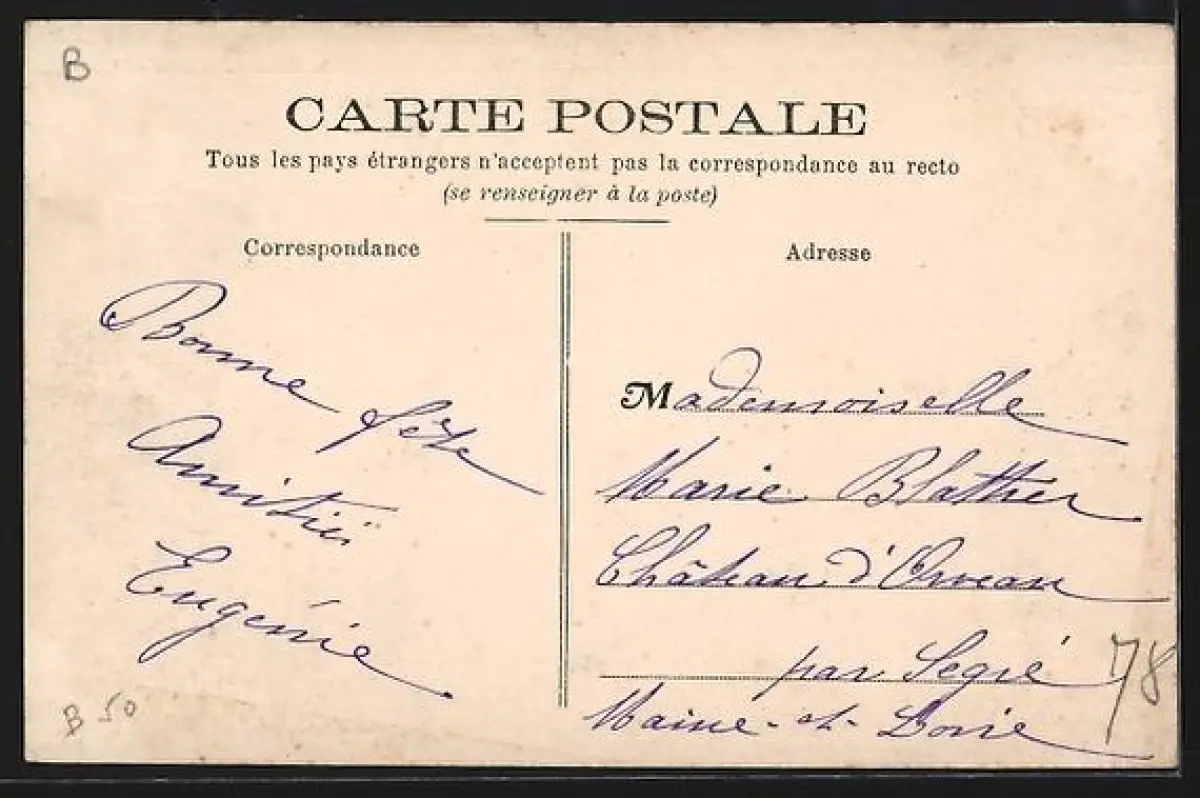 B
CARTE POSTALE
Tous les pays étrangers n'acceptent pas la correspondance au recto
(se renseigner à la poste)
Correspondance
Adresse
Bonne fête
Amitiés
Eugénie
Mademoiselle
Marie Blattier
Château d'Orveau
par Segré
Maine-et-Loire
78
B 50